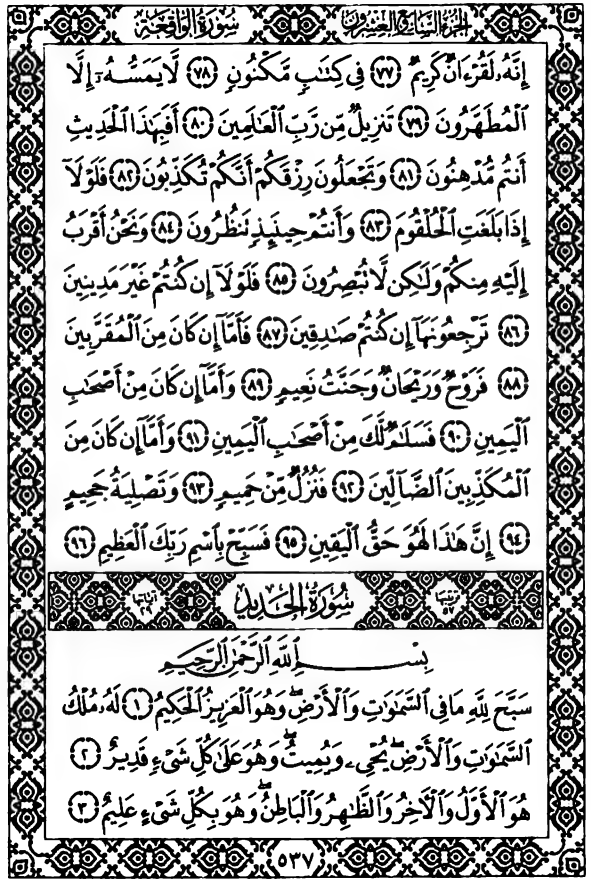 سورة الواقعة الجزء السابع والعشرون
إِنَّهُۥ لَقُرْءَانٌ كَرِيمٌ ﴿٧٧﴾ فِى كِتَٰبٍ مَّكْنُونٍ ﴿٧٨﴾ لَّا يَمَسُّهُۥٓ إِلَّا
ٱلْمُطَهَّرُونَ ﴿٧٩﴾ تَنزِيلٌ مِّن رَّبِّ ٱلْعَٰلَمِينَ ﴿٨٠﴾ أَفَبِهَٰذَا ٱلْحَدِيثِ
أَنتُم مُّدْهِنُونَ ﴿٨١﴾ وَتَجْعَلُونَ رِزْقَكُمْ أَنَّكُمْ تُكَذِّبُونَ ﴿٨٢﴾ فَلَوْلَآ
إِذَا بَلَغَتِ ٱلْحُلْقُومَ ﴿٨٣﴾ وَأَنتُمْ حِينَئِذٍ تَنظُرُونَ ﴿٨٤﴾ وَنَحْنُ أَقْرَبُ
إِلَيْهِ مِنكُمْ وَلَٰكِن لَّا تُبْصِرُونَ ﴿٨٥﴾ فَلَوْلَآ إِن كُنتُمْ غَيْرَ مَدِينِينَ
﴿٨٦﴾ تَرْجِعُونَهَآ إِن كُنتُمْ صَٰدِقِينَ ﴿٨٧﴾ فَأَمَّآ إِن كَانَ مِنَ ٱلْمُقَرَّبِينَ
﴿٨٨﴾ فَرَوْحٌ وَرَيْحَانٌ وَجَنَّتُ نَعِيمٍ ﴿٨٩﴾ وَأَمَّآ إِن كَانَ مِنْ أَصْحَٰبِ
ٱلْيَمِينِ ﴿٩٠﴾ فَسَلَٰمٌ لَّكَ مِنْ أَصْحَٰبِ ٱلْيَمِينِ ﴿٩١﴾ وَأَمَّآ إِن كَانَ مِنَ
ٱلْمُكَذِّبِينَ ٱلضَّآلِّينَ ﴿٩٢﴾ فَنُزُلٌ مِّنْ حَمِيمٍ ﴿٩٣﴾ وَتَصْلِيَةُ جَحِيمٍ
﴿٩٤﴾ إِنَّ هَٰذَا لَهُوَ حَقُّ ٱلْيَقِينِ ﴿٩٥﴾ فَسَبِّحْ بِٱسْمِ رَبِّكَ ٱلْعَظِيمِ ﴿٩٦﴾
ترتيبها ٥٧ سورة الحديد آياتها ٢٩
بِسْمِ ٱللَّهِ ٱلرَّحْمَٰنِ ٱلرَّحِيمِ
سَبَّحَ لِلَّهِ مَا فِى ٱلسَّمَٰوَٰتِ وَٱلْأَرْضِ ۖ وَهُوَ ٱلْعَزِيزُ ٱلْحَكِيمُ ﴿١﴾ لَهُۥ مُلْكُ
ٱلسَّمَٰوَٰتِ وَٱلْأَرْضِ ۖ يُحْىِۦ وَيُمِيتُ ۖ وَهُوَ عَلَىٰ كُلِّ شَىْءٍ قَدِيرٌ ﴿٢﴾
هُوَ ٱلْأَوَّلُ وَٱلْءَاخِرُ وَٱلظَّٰهِرُ وَٱلْبَاطِنُ ۖ وَهُوَ بِكُلِّ شَىْءٍ عَلِيمٌ ﴿٣﴾
٥٣٧